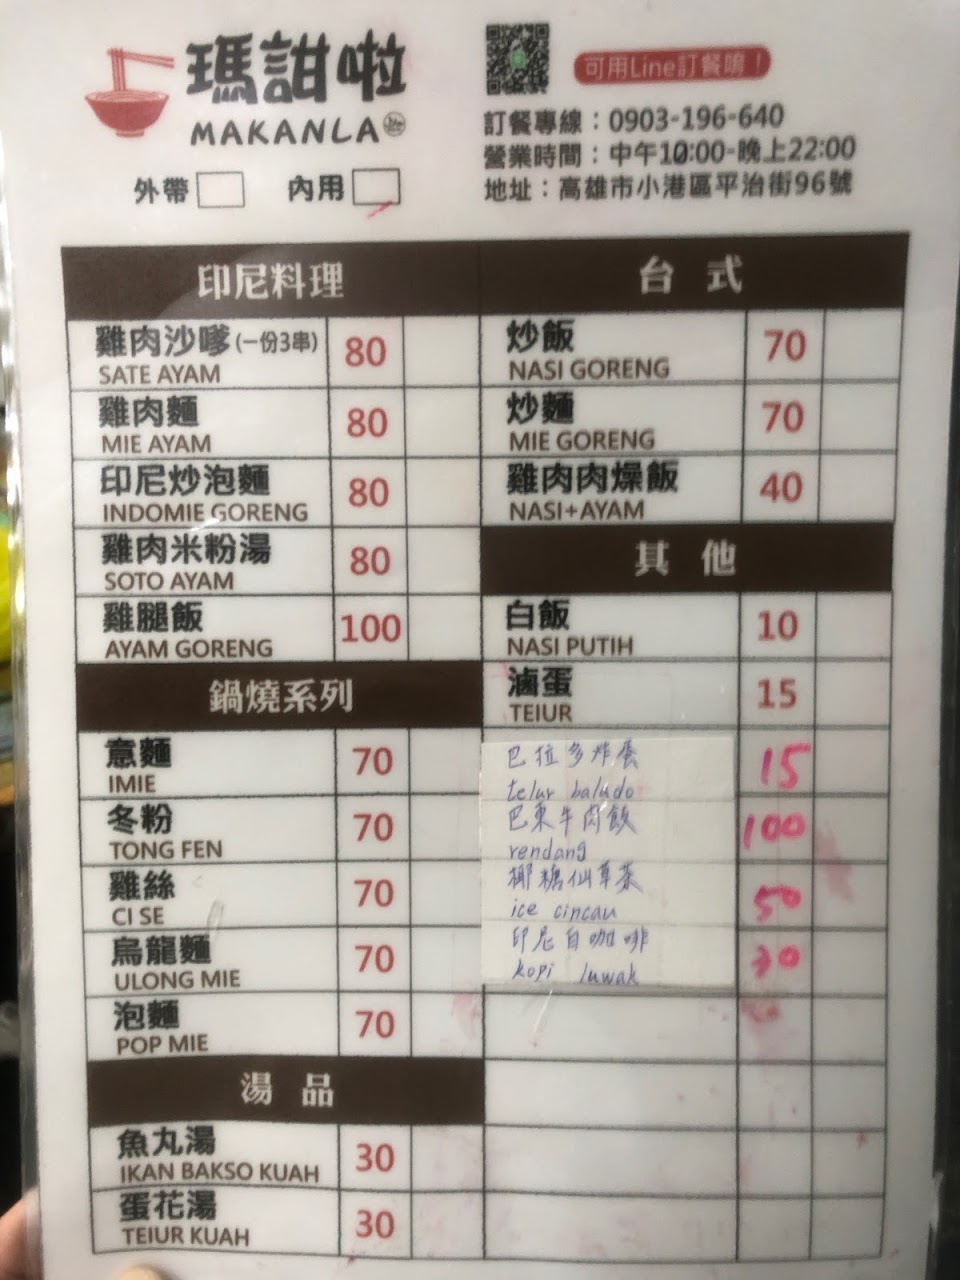 瑪詌啦
MAKANLA
外帶
內用
可用Line訂餐唷！
訂餐專線：0903-196-640
營業時間：中午10:00-晚上22:00
地址：高雄市小港區平治街96號
印尼料理
雞肉沙嗲(一份3串) 80
SATE AYAM
雞肉麵 80
MIE AYAM
印尼炒泡麵 80
INDOMIE GORENG
雞肉米粉湯 80
SOTO AYAM
雞腿飯 100
AYAM GORENG
鍋燒系列
意麵 70
IMIE
冬粉 70
TONG FEN
雞絲 70
CI SE
烏龍麵 70
ULONG MIE
泡麵 70
POP MIE
湯 品
魚丸湯 30
IKAN BAKSO KUAH
蛋花湯 30
TEIUR KUAH
台 式
炒飯 70
NASI GORENG
炒麵 70
MIE GORENG
雞肉肉燥飯 40
NASI+AYAM
其 他
白飯 10
NASI PUTIH
滷蛋 15
TEIUR
巴拉多炸蛋 15
telur baludo
巴東牛肉飯 100
rendang
椰糖仙草茶 50
ice cincau
印尼白咖啡 30
kopi luwak